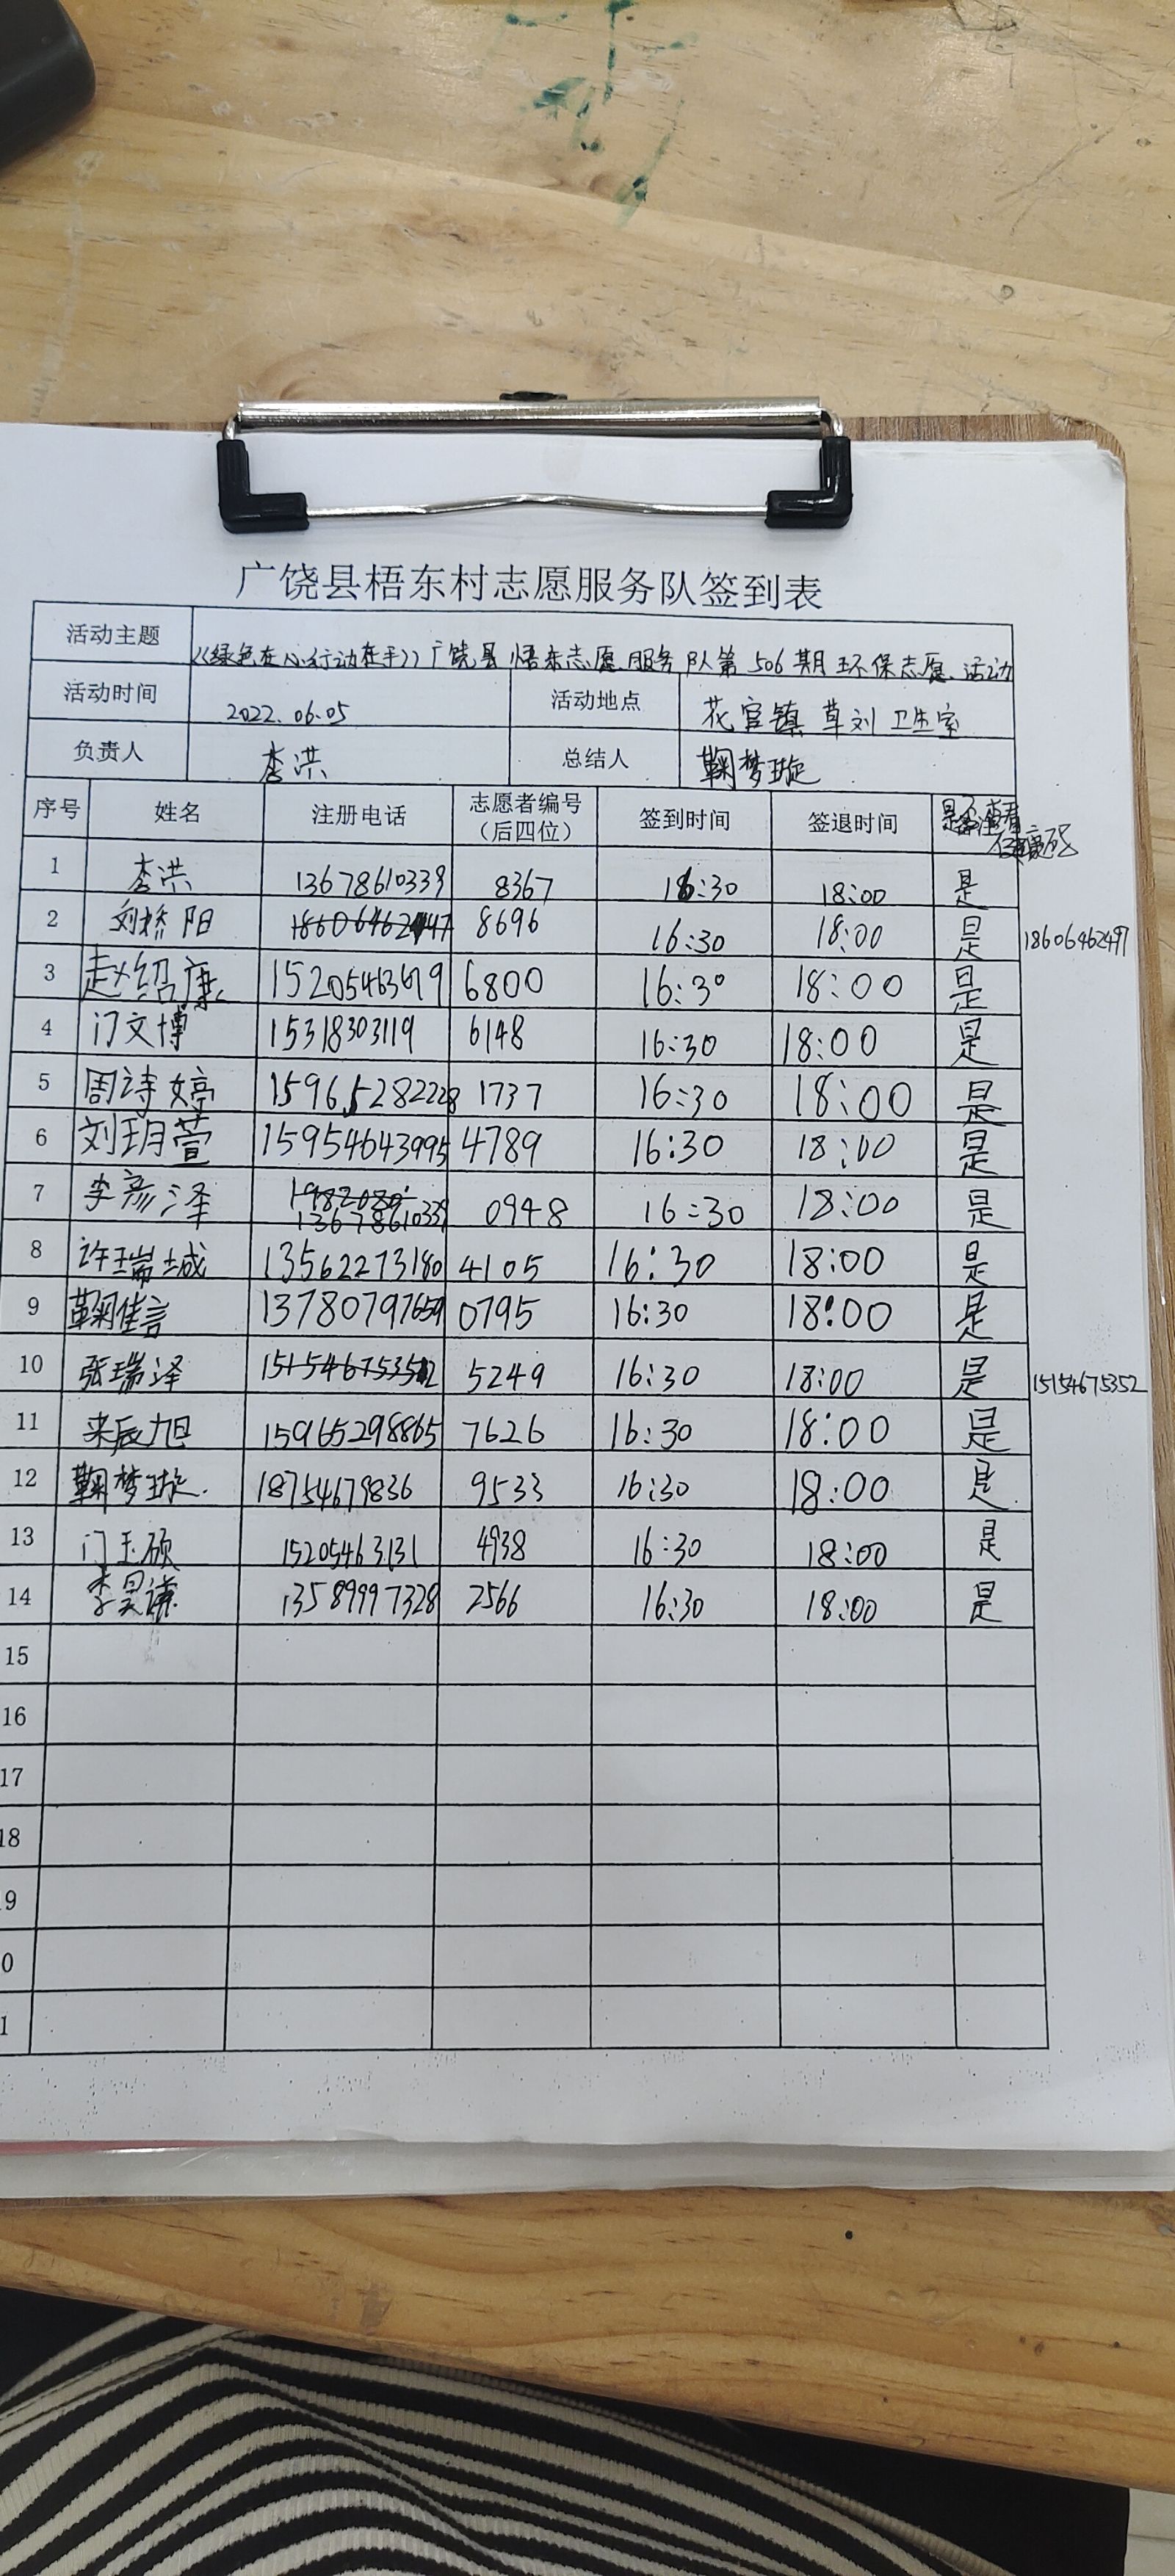 广饶县梧东村志愿服务队签到表
活动主题 《《绿色在心行动在手》》广饶县梧东志愿服务队第506期环保志愿活动
活动时间 2022.06.05 活动地点 花官镇草刘卫生室
负责人 李洪 总结人 鞠梦璇
序号 姓名 注册电话 志愿者编号（后四位） 签到时间 签退时间 是否查看健康码
1 李洪 13678610339 8367 16:30 18:00 是
2 刘娇阳 8696 16:30 18:00 是 18606462497
3 赵绍康 15205463619 6800 16:30 18:00 是
4 门文博 15318303119 6148 16:30 18:00 是
5 周诗婷 15965282228 1737 16:30 18:00 是
6 刘玥萱 15954643995 4789 16:30 18:00 是
7 李彦泽 13678610339 0948 16:30 18:00 是
8 许瑞城 13562273180 4105 16:30 18:00 是
9 鞠佳言 13780797659 0795 16:30 18:00 是
10 张瑞泽 5249 16:30 18:00 是 15154675352
11 来辰旭 15965298865 7626 16:30 18:00 是
12 鞠梦璇 18754679836 9533 16:30 18:00 是
13 门玉硕 15205463131 4938 16:30 18:00 是
14 李昊谦 13589997328 2566 16:30 18:00 是
15
16
17
18
9
0
1